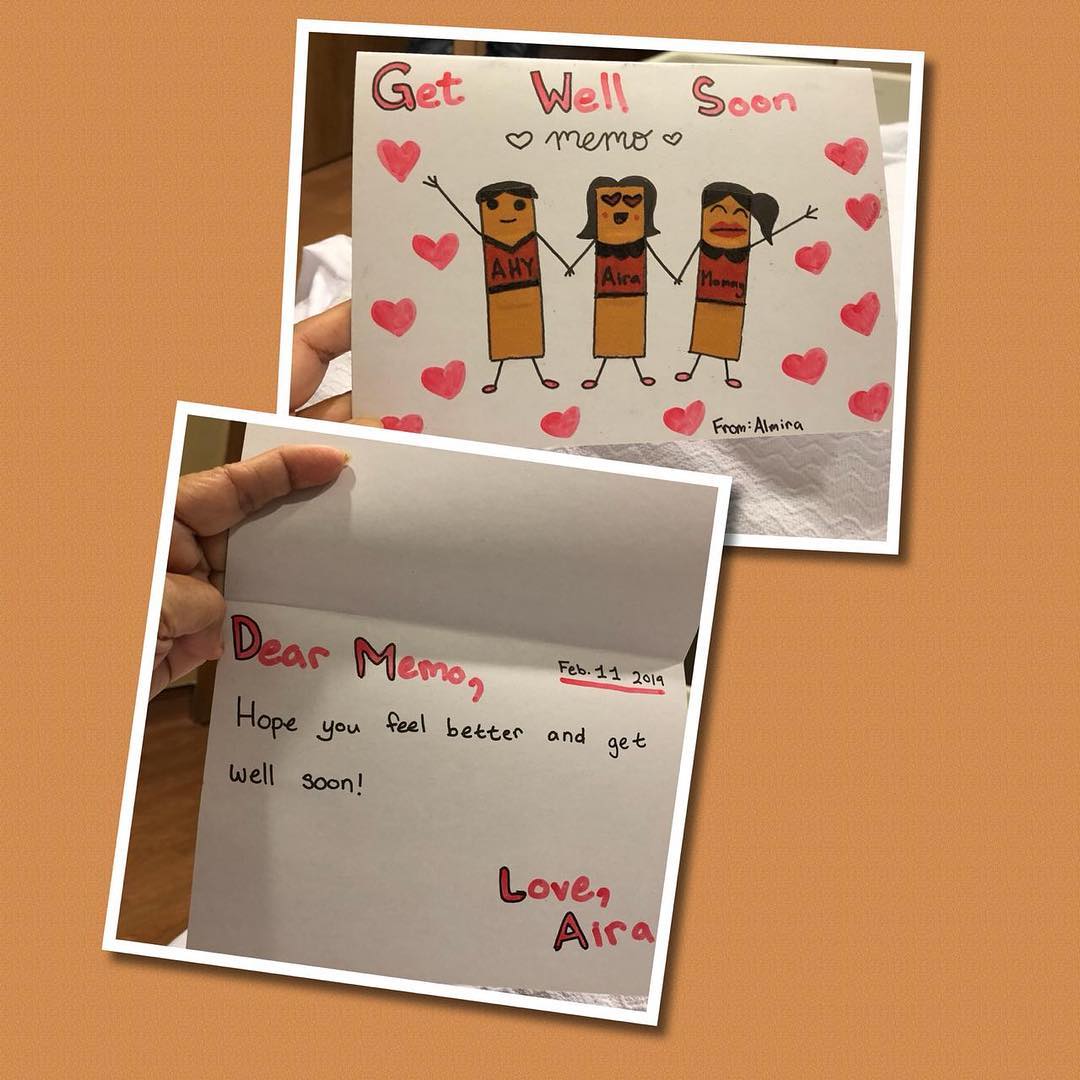 Get Well Soon
♡ memo ♡
AHY
Aira
Mommy
From: Almira
Dear Memo,
Feb. 11 2019
Hope you feel better and get
well soon!
Love,
Aira